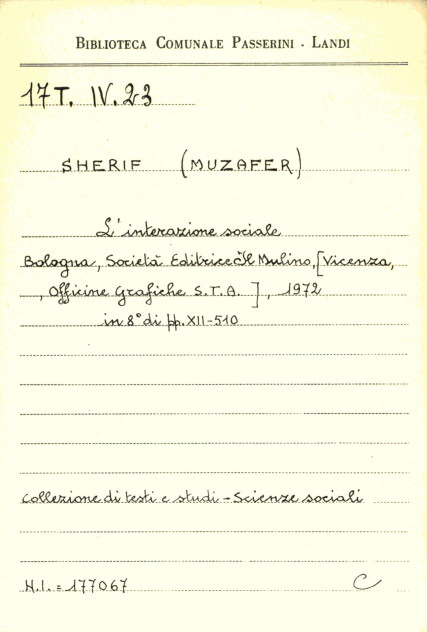 BIBLIOTECA COMUNALE PASSERINI - LANDI
17T. IV. 23
SHERIF (MUZAFER)
L'interazione sociale
Bologna, Società Editrice Il Mulino, [Vicenza,
, Officine Grafiche S.T.A. ] , 1972
in 8° di pp. XII-510
Collezione di testi e studi - Scienze sociali
N.I. = 177067 C